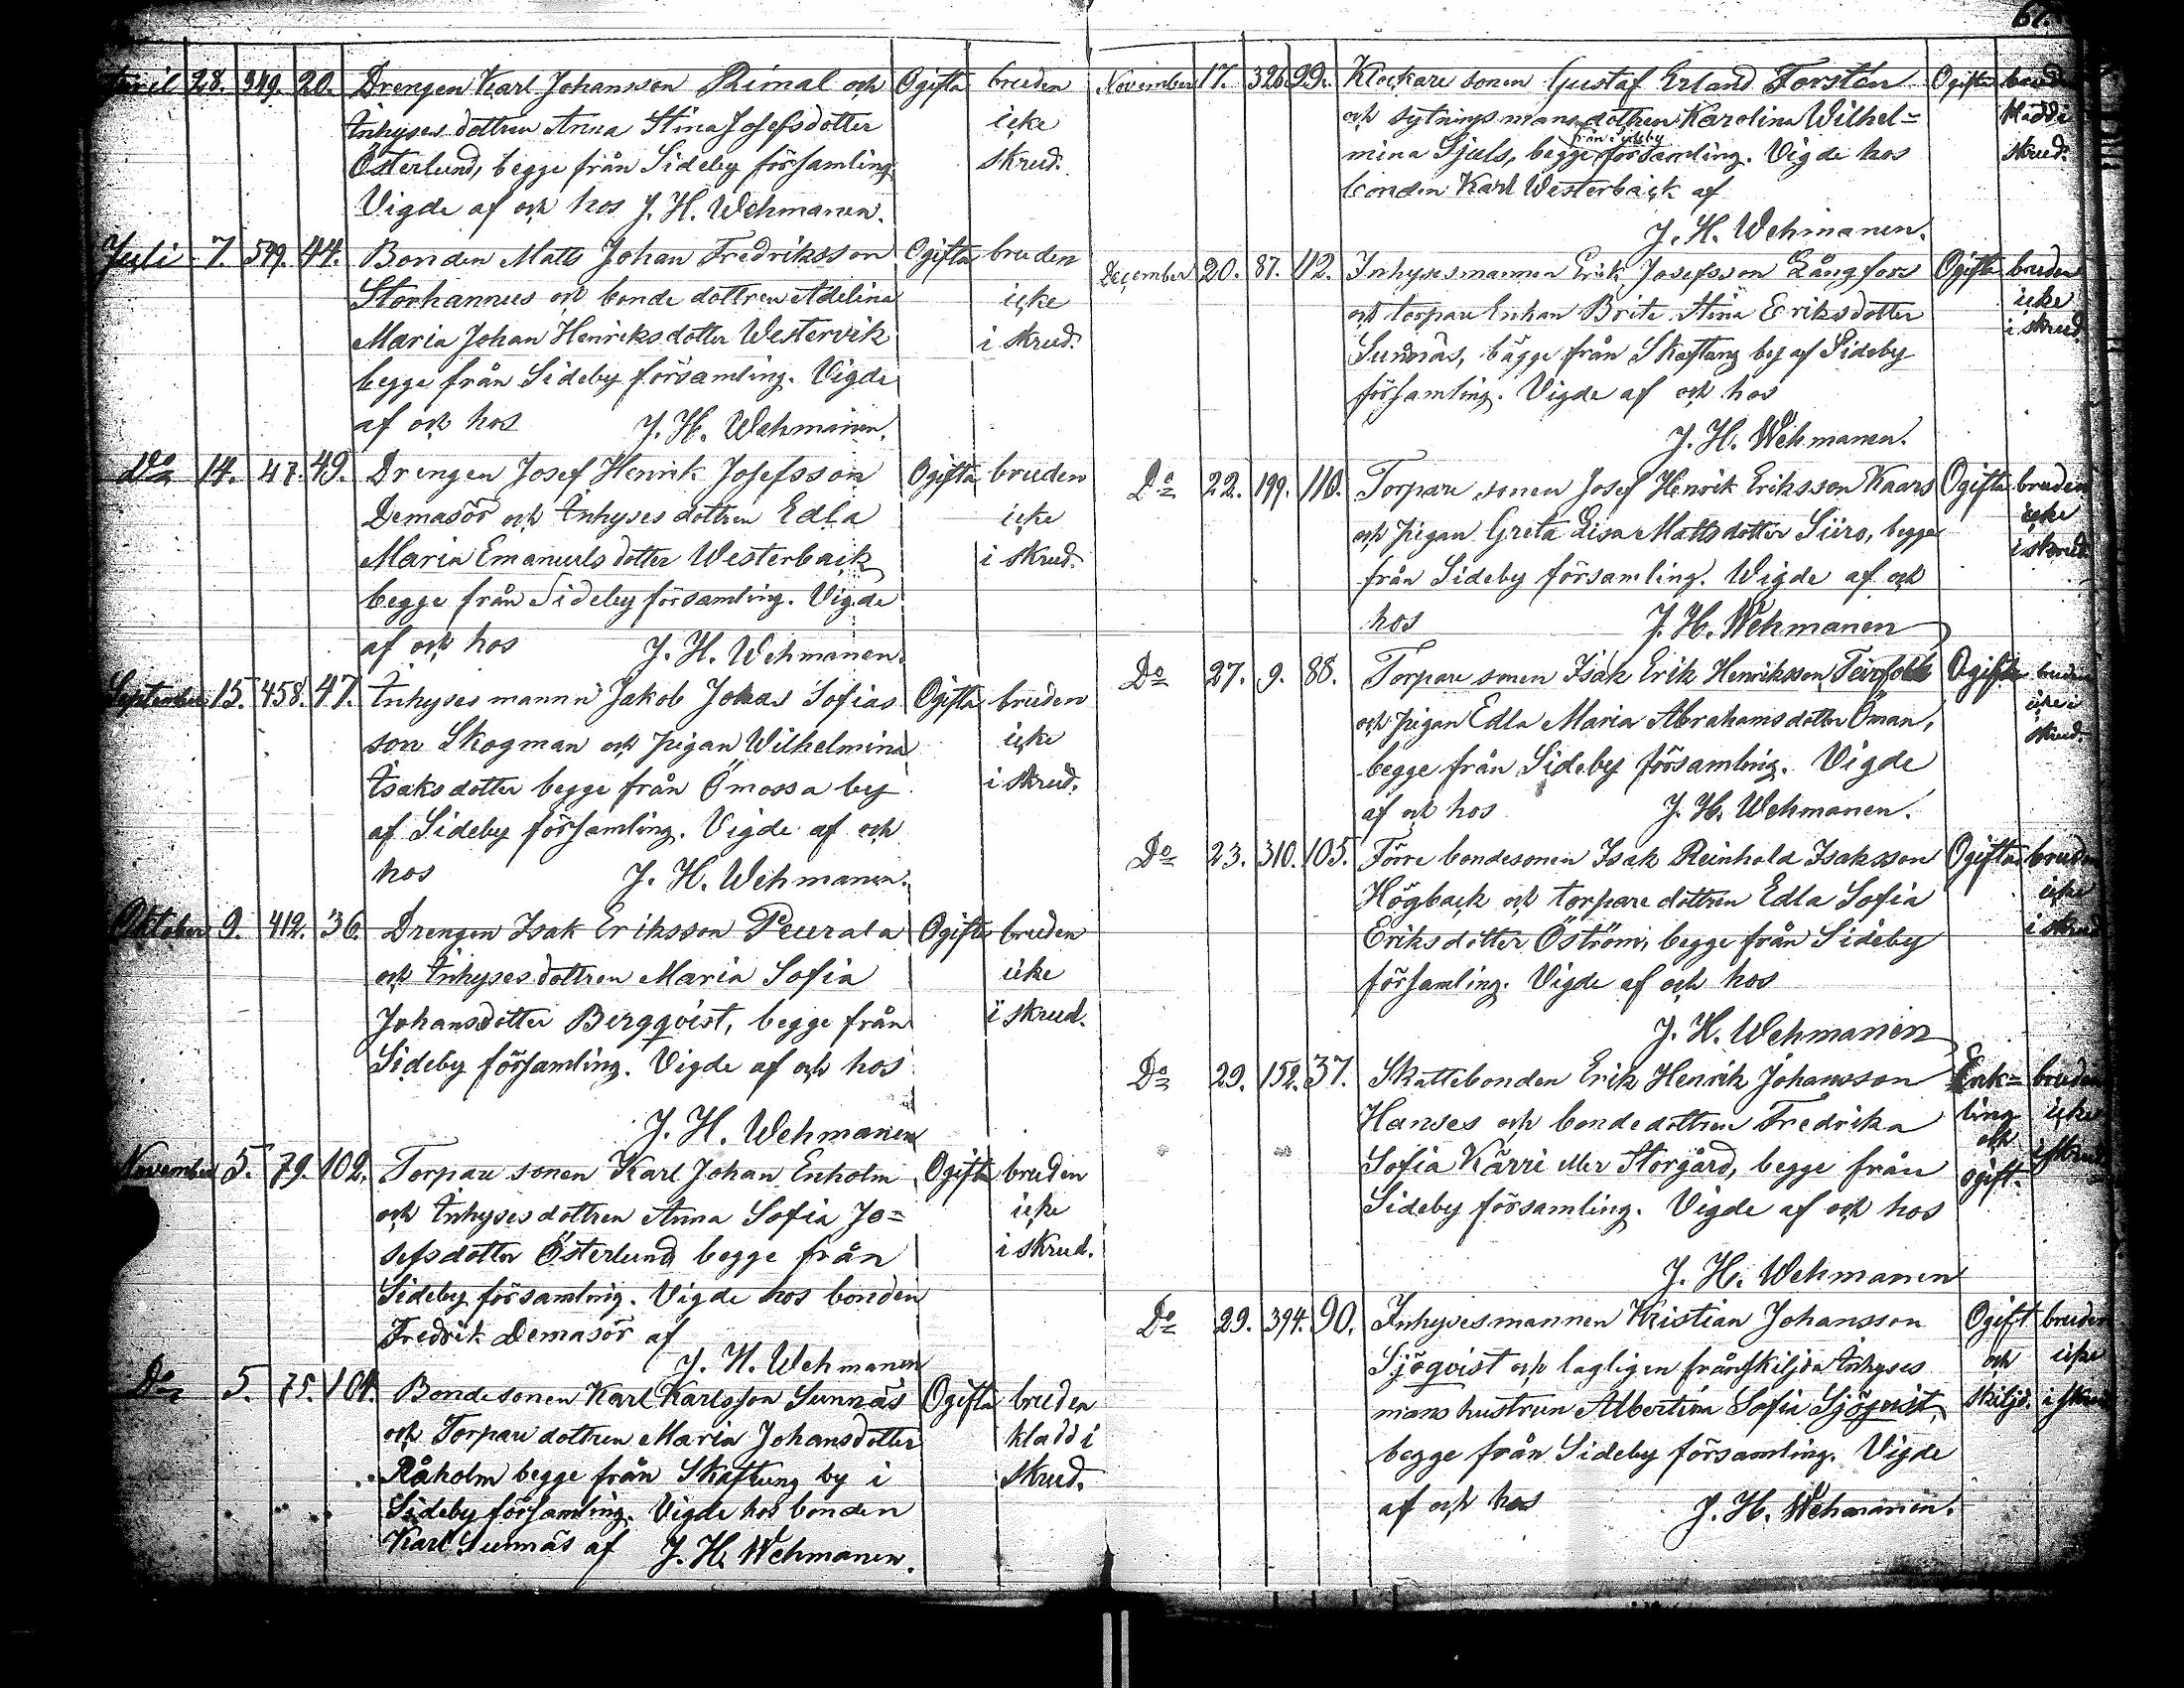 61.
April 28. 349. 20. Drengen Karl Johansson Rimal och Ogifta bruden
Inhyses dottren Anna Stina Josefsdotter icke
Österlund, begge från Sideby församling. skrud.
Vigde af och hos J. H. Wehmanen.
Juli 7. 549. 44. Bonden Matts Johan Fredriksson Ogifta bruden
Storhannus och bonde dottren Adelina icke
Maria Johan Henriksdotter Westervik i skrud.
begge från Sideby församling. Vigde
af och hos J. H. Wehmanen.
Do 14. 47. 49. Drengen Josef Henrik Josefsson Ogifta bruden
Demasör och Inhyses dottren Edla icke
Maria Emanuels dotter Westerback i skrud.
begge från Sideby församling. Vigde
af och hos J. H. Wehmanen.
September 15. 458. 47. Inhyses mannen Jakob Jonas Sofias Ogifta bruden
son Skogman och pigan Wilhelmina icke
Isaks dotter begge från Ömossa by i skrud.
af Sideby församling. Vigde af och
hos J. H. Wehmanen.
Oktober 9. 412. 36. Drengen Isak Eriksson Peurala Ogifta bruden
och Inhyses dottren Maria Sofia icke
Johansdotter Bergqvist, begge från i skrud.
Sideby församling. Vigde af och hos
J. H. Wehmanen
November 5. 79. 102. Torpare sonen Karl Johan Enholm Ogifta bruden
och Inhyses dottren Anna Sofia Jo= icke
sefsdotter Österlund begge från i skrud.
Sideby församling. Vigde hos bonden
Fredrik Demasör af
J. H. Wehmanen
Do 5. 75. 104. Bondesonen Karl Karlsson Sunnäs Ogifta bruden
och Torpare dottren Maria Johansdotter kladd i
Råholm begge från Skaftung by i skrud.
Sideby församling. Vigde hos bonden
Karl Sunnäs af J. H. Wehmanen.
November 17. 326. 99. Klockare sonen Gustaf Erland Forstén Ogifta
och sytnings mans dottren Karolina Wilhel= kladd i
från Sideby
mina Sjæls, begge församling. Vigde hos skrud.
bonden Karl Westerback af
J. H. Wehmanen.
December 20. 87. 112. Inhysesmannen Erik Josefsson Långfors Ogifta bruden
och torpare Enkan Brita Stina Eriksdotter icke
Sundnäs, bägge från Skaftung by af Sideby i skrud
församling. Vigde af och hos
J. H. Wehmanen.
Do 22. 199. 110. Torpare sonen Josef Henrik Eriksson Kaars Ogifta bruden
och pigan Greta Lisa Mattsdotter Siiro, begge icke
från Sideby församling. Wigde af och i skrud.
hos J. H. Wehmanen
Do 27. 9. 88. Torpare sonen Isak Erik Henriksson Teirfolk Ogifta bruden
och pigan Edla Maria Abrahams dotter Öman, icke i
begge från Sideby församling. Vigde skrud.
af och hos J. H. Wehmanen.
Do 23. 310. 105. Förre bondesonen Isak Reinhold Isaksson Ogifta bruden
Högback och torpare dottren Edla Sofia icke
Eriksdotter Öström, begge från Sideby i skrud
församling. Vigde af och hos
J. H. Wehmanen
Do 29. 152. 37. Skattebonden Erik Henrik Johansson Enk= bruden
Hanses och bondedottren Fredrika ling icke
Sofia Kärri eller Storgård, begge från och i skrud
Sideby församling. Vigde af och hos ogift.
J. H. Wehmanen
Do 29. 394. 90. Inhysesmannen Kristian Johansson Ogift bruden
Sjöqvist och lagligen frånskiljda Inhyses och icke
mans hustrun Albertina Sofia Sjöqvist, skiljd. i skrud
begge från Sideby församling. Vigde
af och hos J. H. Wehmanen.